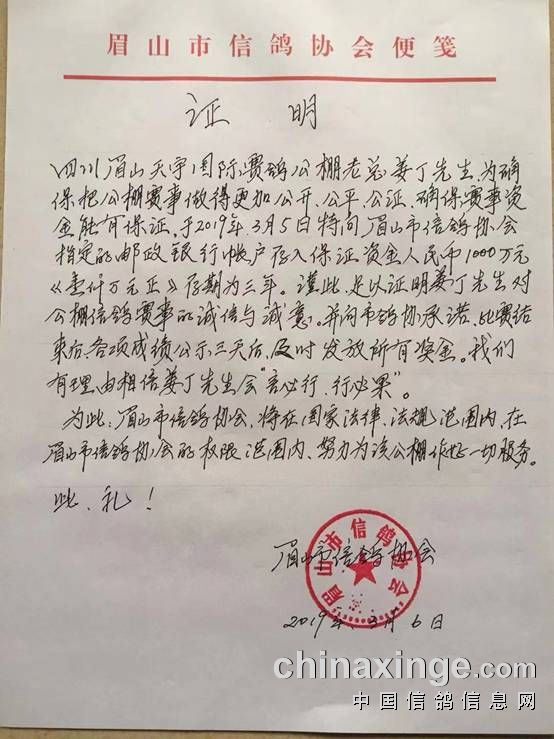 眉山市信鸽协会便笺
证 明
四川眉山天宇国际赛鸽公棚老总姜丁先生、为确
保把公棚赛事做得更加公开、公平、公证、确保赛事资
金能有保证、于2019年3月5日特向眉山市信鸽协会
指定的邮政银行帐户存入保证资金人民币1000万元
《壹仟万元正》存期为三年。谨此、足以证明姜丁先生对
公棚信鸽赛事的诚信与诚意。并向市鸽协承诺、比赛结
束后、各项成绩公示三天后、及时发放所有奖金。我们
有理由相信姜丁先生会“言必行、行必果”。
为此:眉山市信鸽协会、将在国家法律、法规范围内、在
眉山市信鸽协会的权限范围内、努力为该公棚作好一切服务。
此、礼!
眉山市信鸽协会
眉山市信鸽协会
2019年3月6日
chinaxinge.com
中国信鸽信息网